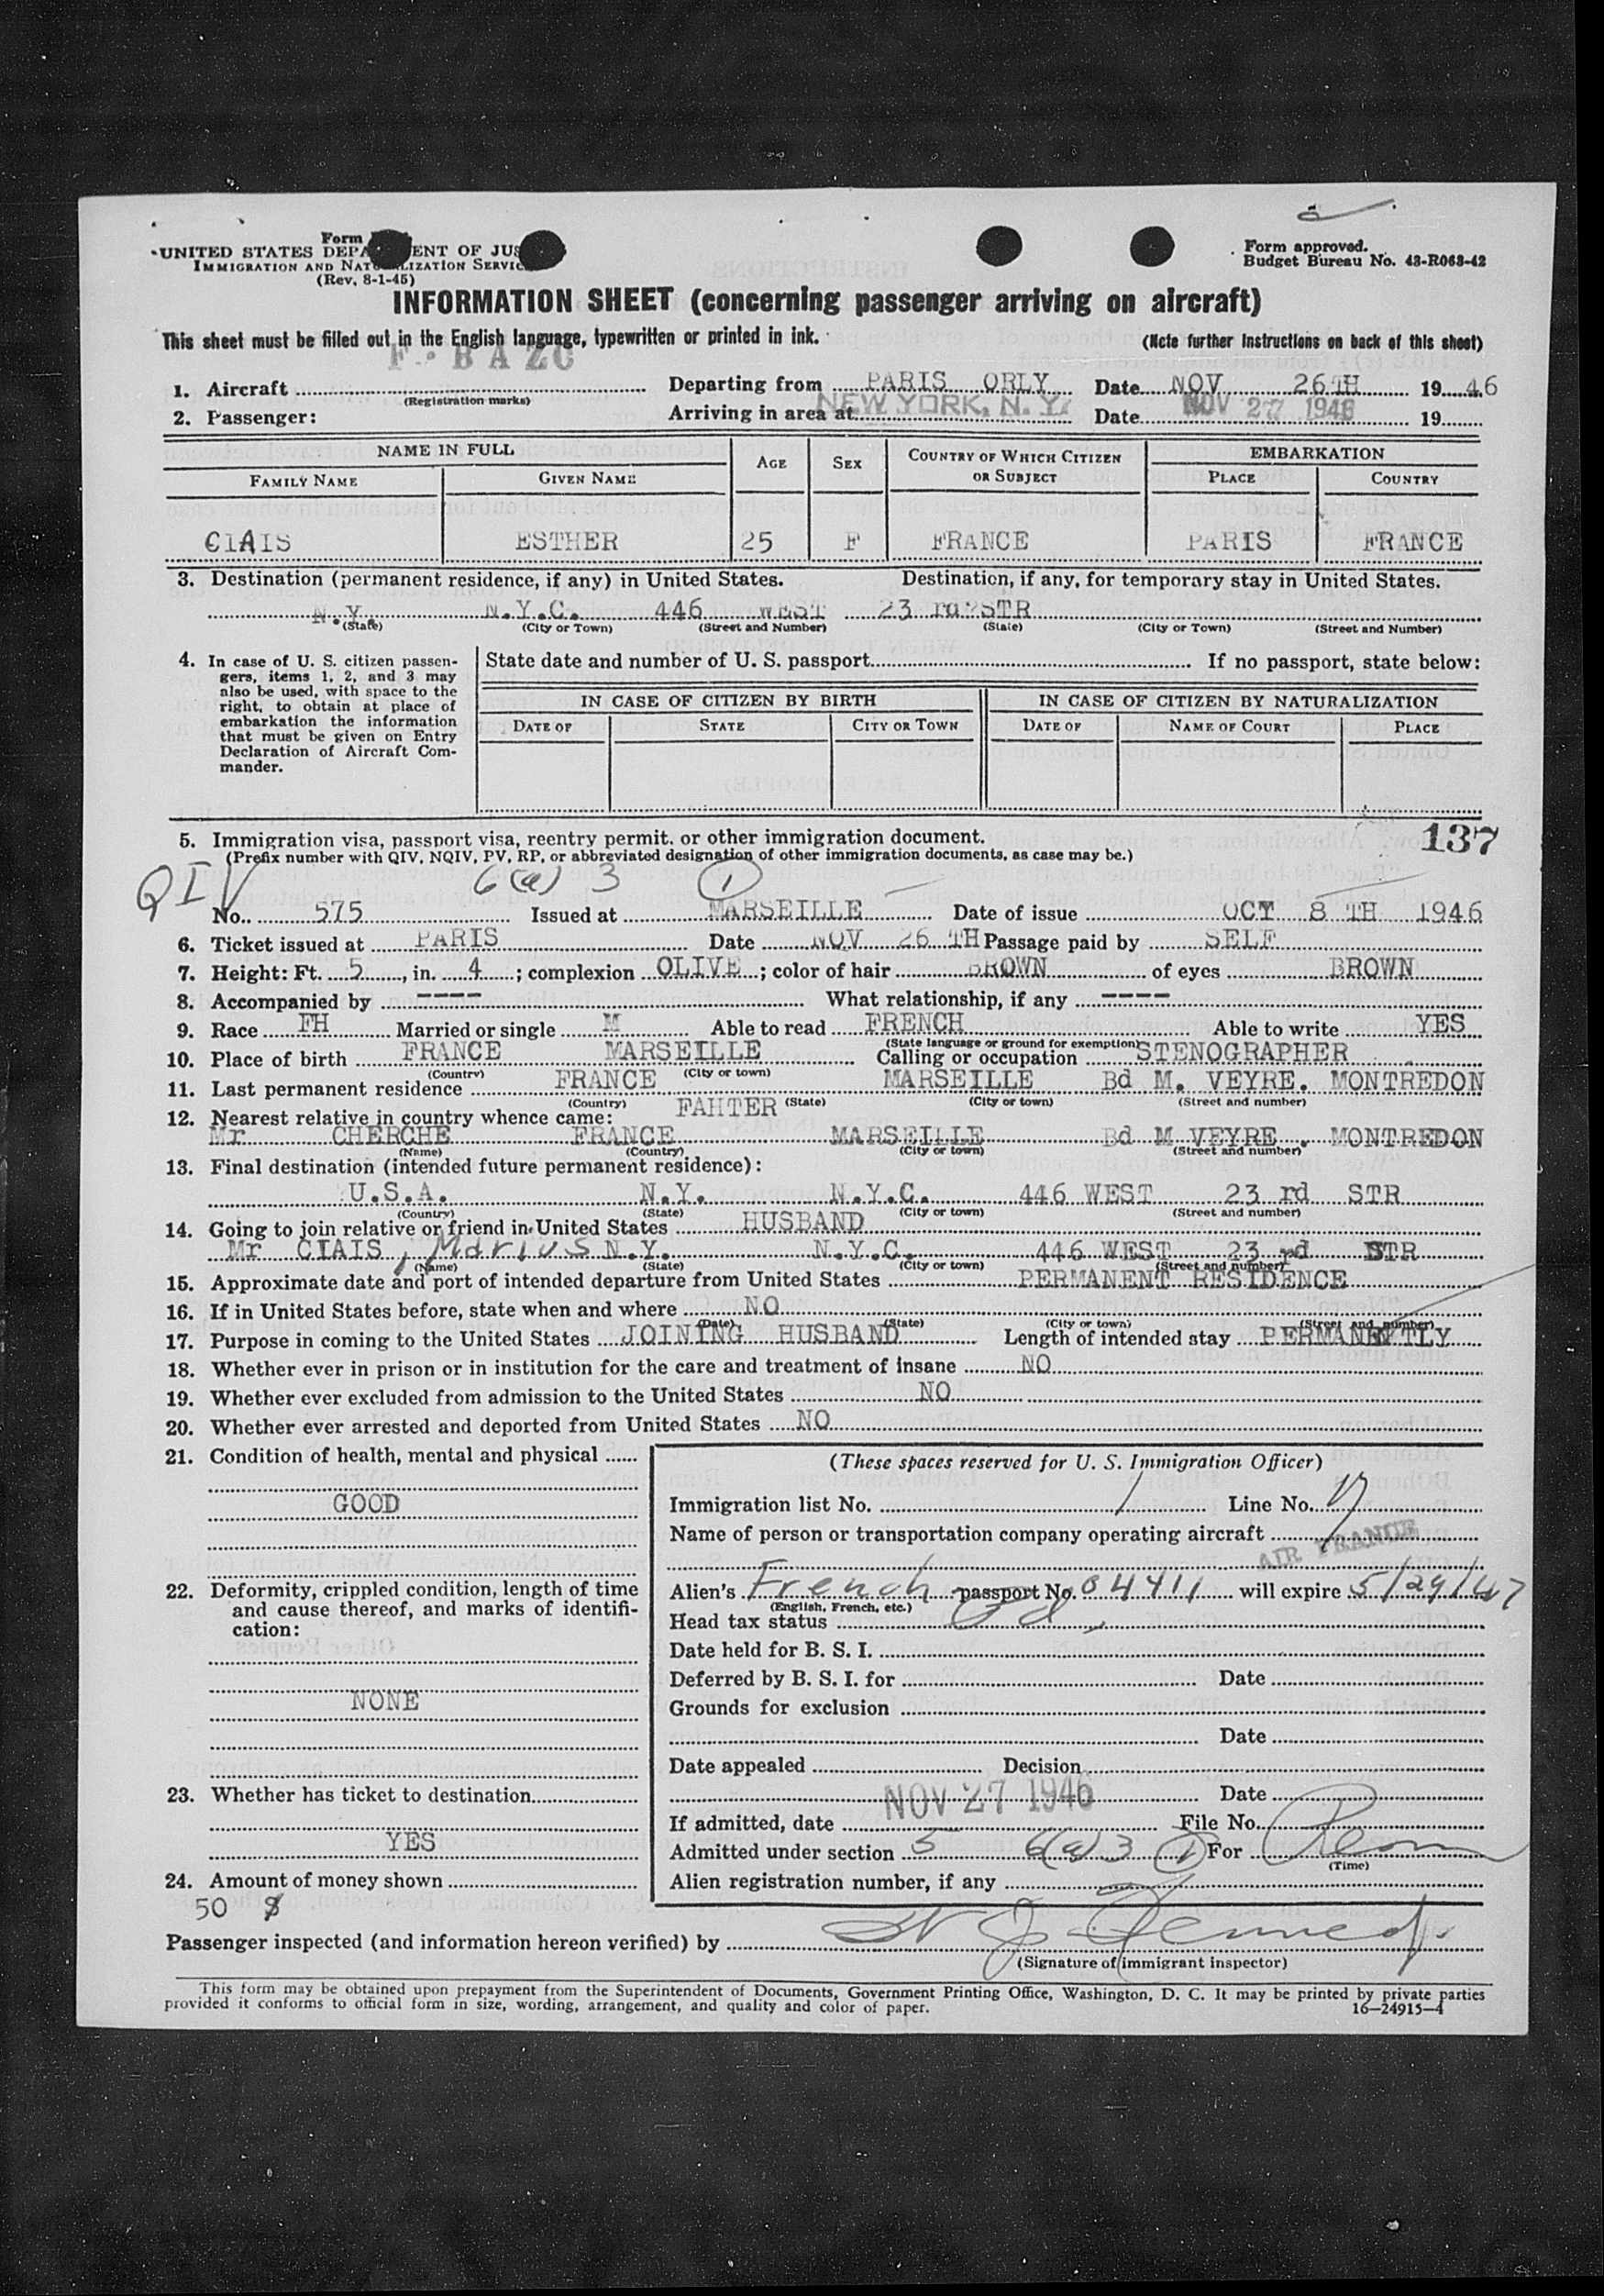 Form
UNITED STATES DEPA ENT OF JUS
IMMIGRATION AND NATU LIZATION SERVIC
(Rev. 8-1-45)
Form approved.
Budget Bureau No. 43-R063-42
INFORMATION SHEET (concerning passenger arriving on aircraft)
This sheet must be filled out in the English language, typewritten or printed in ink. (Note further instructions on back of this sheet)
F-BAZC
1. Aircraft (Registration marks) Departing from PARIS ORLY Date NOV 26TH 1946
2. Passenger: Arriving in area at NEW YORK, N. Y. Date NOV 27 1946 19
NAME IN FULL AGE SEX COUNTRY OF WHICH CITIZEN OR SUBJECT EMBARKATION
FAMILY NAME GIVEN NAME PLACE COUNTRY
CIAIS ESTHER 25 F FRANCE PARIS FRANCE
3. Destination (permanent residence, if any) in United States. Destination, if any, for temporary stay in United States.
N.Y. N.Y.C. 446 WEST 23 rd STR
(State) (City or Town) (Street and Number) (State) (City or Town) (Street and Number)
4. In case of U. S. citizen passengers, items 1, 2, and 3 may also be used, with space to the right, to obtain at place of embarkation the information that must be given on Entry Declaration of Aircraft Commander.
State date and number of U. S. passport If no passport, state below:
IN CASE OF CITIZEN BY BIRTH IN CASE OF CITIZEN BY NATURALIZATION
DATE OF STATE CITY OR TOWN DATE OF NAME OF COURT PLACE
137
5. Immigration visa, passport visa, reentry permit, or other immigration document.
(Prefix number with QIV, NQIV, PV, RP, or abbreviated designation of other immigration documents, as case may be.)
QIV 6(a) 3 1
No. 575 Issued at MARSEILLE Date of issue OCT 8 TH 1946
6. Ticket issued at PARIS Date NOV 26 TH Passage paid by SELF
7. Height: Ft. 5, in. 4; complexion OLIVE; color of hair BROWN of eyes BROWN
8. Accompanied by ---- What relationship, if any ----
9. Race FH Married or single M Able to read FRENCH Able to write YES
(State language or ground for exemption)
10. Place of birth FRANCE MARSEILLE Calling or occupation STENOGRAPHER
(Country) (City or town)
11. Last permanent residence FRANCE MARSEILLE Bd M. VEYRE. MONTREDON
(Country) (State) (City or town) (Street and number)
12. Nearest relative in country whence came: FAHTER
Mr CHERCHE FRANCE MARSEILLE Bd M VEYRE. MONTREDON
(Name) (Country) (City or town) (Street and number)
13. Final destination (intended future permanent residence):
U.S.A. N.Y. N.Y.C. 446 WEST 23 rd STR
(Country) (State) (City or town) (Street and number)
14. Going to join relative or friend in United States HUSBAND
Mr CIAIS, Marius N.Y. N.Y.C. 446 WEST 23 rd STR
(Name) (State) (City or town) (Street and number)
15. Approximate date and port of intended departure from United States PERMANENT RESIDENCE
16. If in United States before, state when and where NO
(Date) (State) (City or town) (Street and number)
17. Purpose in coming to the United States JOINING HUSBAND Length of intended stay PERMANENTLY
18. Whether ever in prison or in institution for the care and treatment of insane NO
19. Whether ever excluded from admission to the United States NO
20. Whether ever arrested and deported from United States NO
21. Condition of health, mental and physical
GOOD
22. Deformity, crippled condition, length of time and cause thereof, and marks of identification:
NONE
23. Whether has ticket to destination
YES
24. Amount of money shown
50 $
(These spaces reserved for U. S. Immigration Officer)
Immigration list No. 1 Line No. 17
Name of person or transportation company operating aircraft
AIR FRANCE
Alien's French passport No. 04411 will expire 5/29/47
(English, French, etc.)
Head tax status Pd
Date held for B. S. I.
Deferred by B. S. I. for Date
Grounds for exclusion
Date
Date appealed Decision
Date
If admitted, date NOV 27 1946 File No.
Admitted under section 5 6(a) 3 1 For Perm
(Time)
Alien registration number, if any
Passenger inspected (and information hereon verified) by
(Signature of immigrant inspector)
This form may be obtained upon prepayment from the Superintendent of Documents, Government Printing Office, Washington, D. C. It may be printed by private parties
provided it conforms to official form in size, wording, arrangement, and quality and color of paper. 16—24915-4